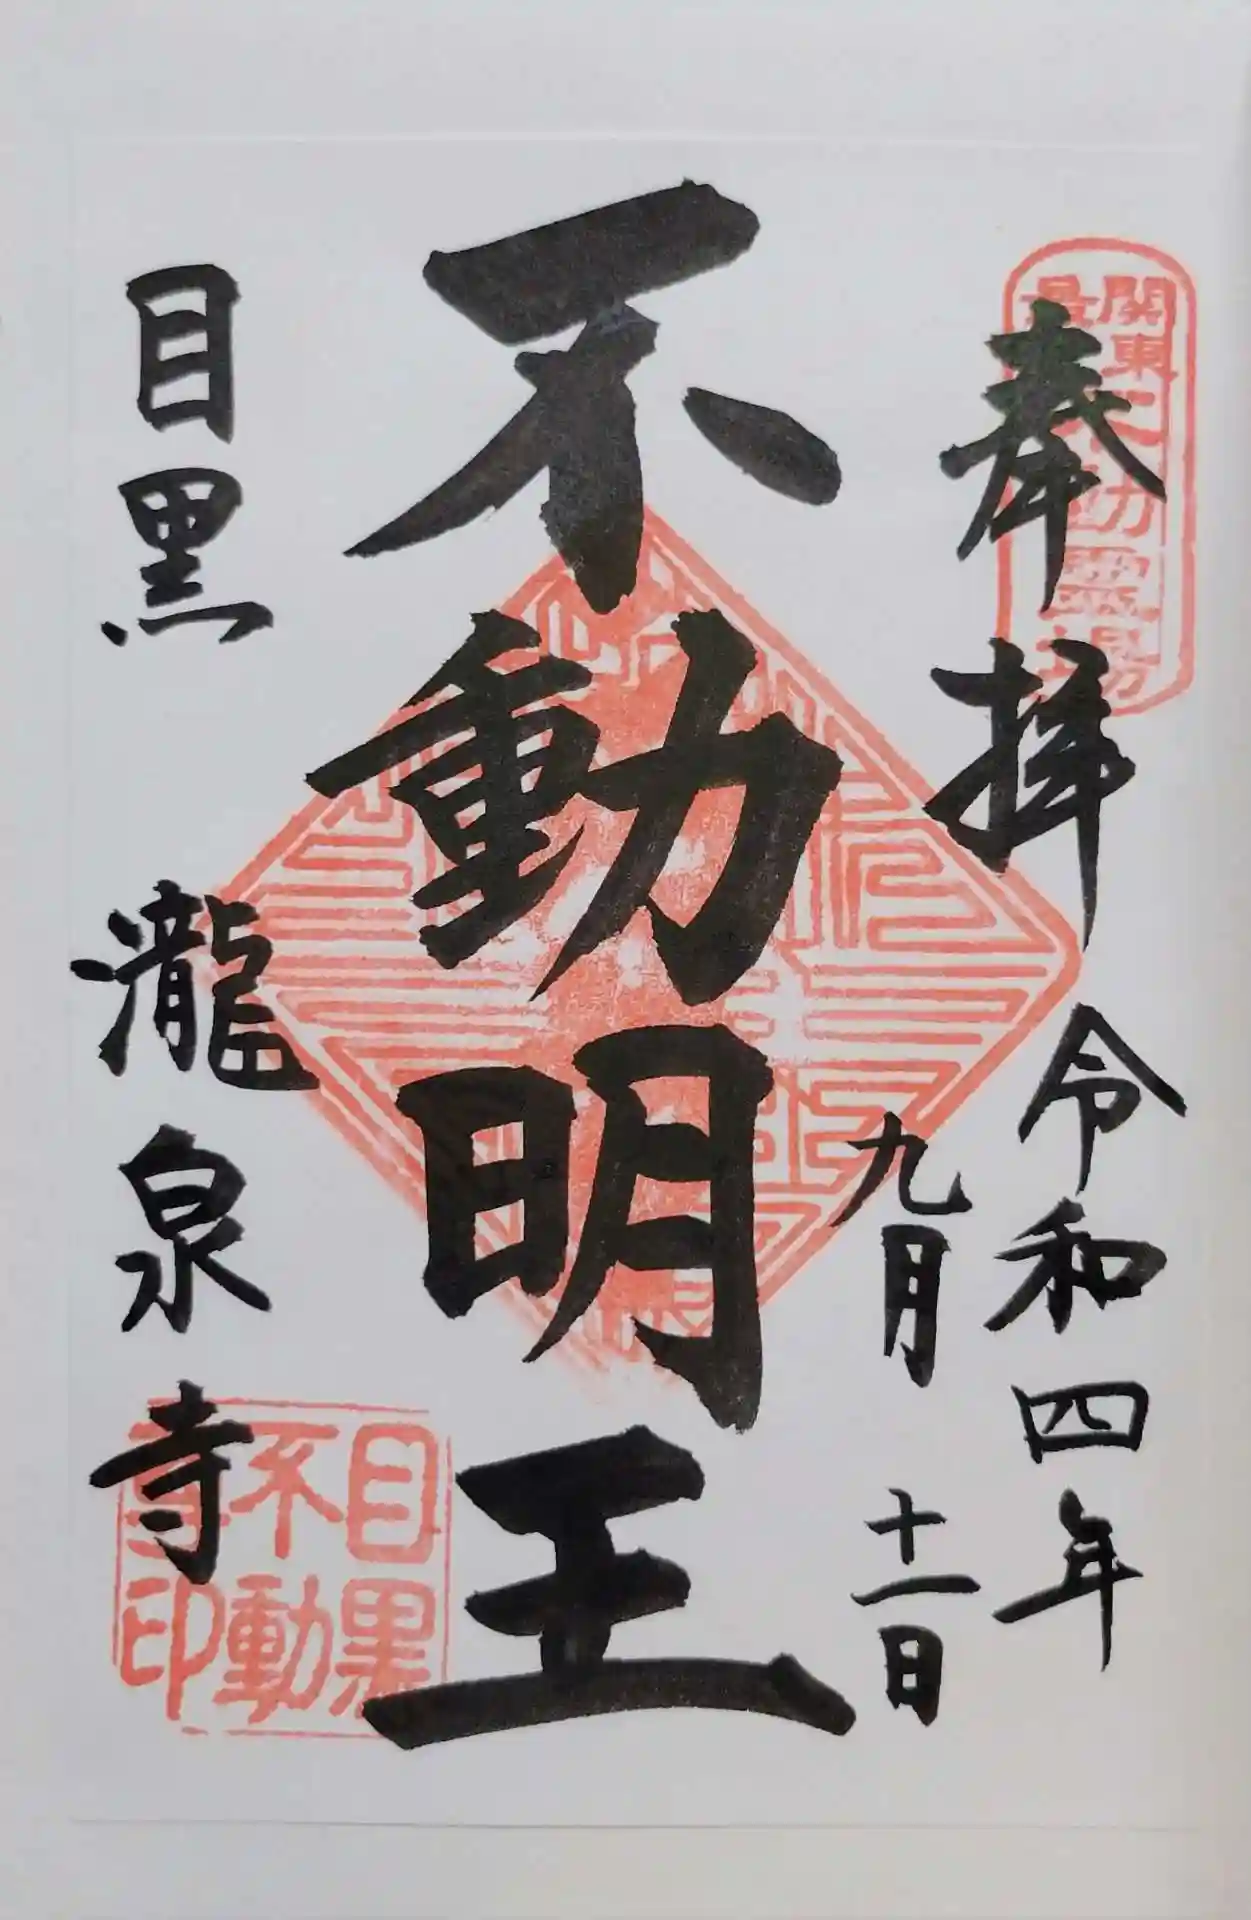 奉拝
令和四年
九月十一日
不動明王
目黒 瀧泉寺
関東最
霊場
目黒
不動
寺印